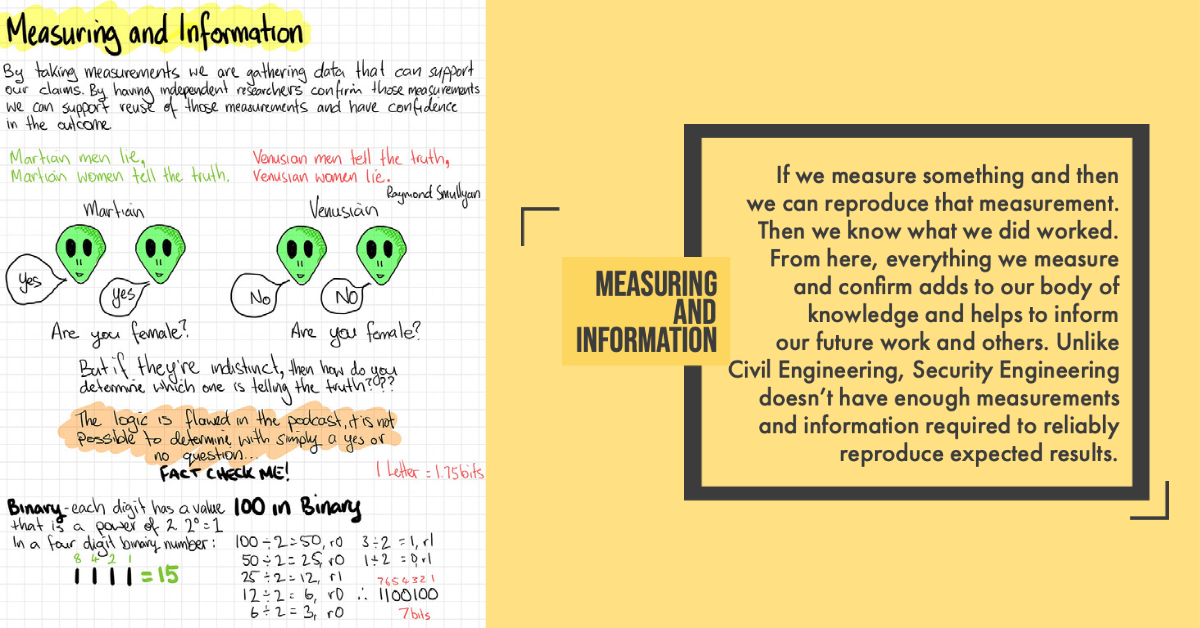 Measuring and Information
By taking measurements we are gathering data that can support
our claims. By having independent researchers confirm those measurements
we can support reuse of those measurements and have confidence
in the outcome.
Martian men lie,
Martian women tell the truth.
Venusian men tell the truth,
Venusian women lie.
Raymond Smullyan
Martian
Venusian
Yes
Yes
No
No
Are you female?
Are you female?
But if they're indistinct, then how do you
determine which one is telling the truth????
The logic is flawed in the podcast, it is not
possible to determine with simply a yes or
no question...
FACT CHECK ME!
1 Letter = 1.75bits
Binary - each digit has a value
that is a power of 2. 2⁰=1
In a four digit binary number:
8 4 2 1
1 1 1 1 = 15
100 in Binary
100÷2=50, r0
50÷2=25, r0
25÷2=12, r1
12÷2=6, r0
6÷2=3, r0
3÷2=1, r1
1÷2=0, r1
7654321
∴ 1100100
7bits
MEASURING
AND
INFORMATION
If we measure something and then
we can reproduce that measurement.
Then we know what we did worked.
From here, everything we measure
and confirm adds to our body of
knowledge and helps to inform
our future work and others. Unlike
Civil Engineering, Security Engineering
doesn't have enough measurements
and information required to reliably
reproduce expected results.